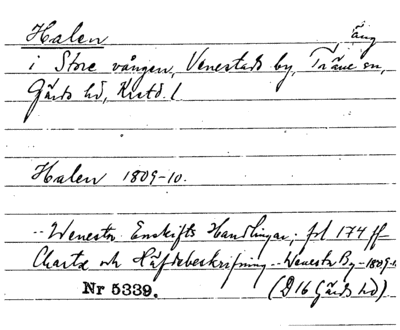 Halen äng
i Store vången, Venestads by, Träne sn,
Gärds hd, Krstd. l
Halen 1809-10.
-- Wenesta Enskifts Handlingar; fol 174 ff
Charta och Häfdebeskrifning -- Wenesta By - 1809-1
Nr 5339. (D 16 Gärds hd)